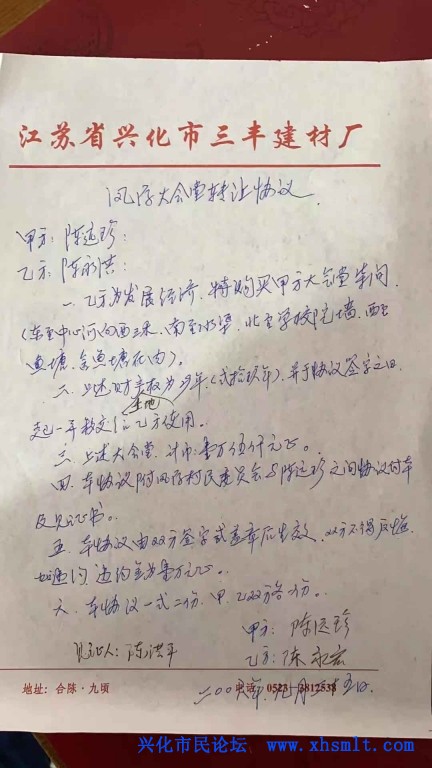 江苏省兴化市三丰建材厂
大会堂转让协议
甲方：陈远珍：
乙方：陈永洪：
一、乙方为发展经济，特购买甲方大会堂
（东至中心河向西三米，南至水渠，北至学校院墙，西至
鱼塘，含鱼塘在内）。
二、上述财产权为 年（贰拾玖年），并于协议签字之日
土地
起一并移交给乙方使用。
三、上述大会堂，计币：壹万伍仟元正。
四、本协议附 村民委员会与陈远珍之间协议付本
及见证书。
五、本协议由双方签字或盖章后生效，双方不得反悔，
如违约，违约金为壹万元正。
六、本协议一式二份，甲、乙双方各 份。
甲方：陈远珍
见证人：陈洪平
乙方：陈永宏
地址：合陈·九顷
电话 0523-3812538
二00 年 月 五日
兴化市民论坛：www.xhsmlt.com